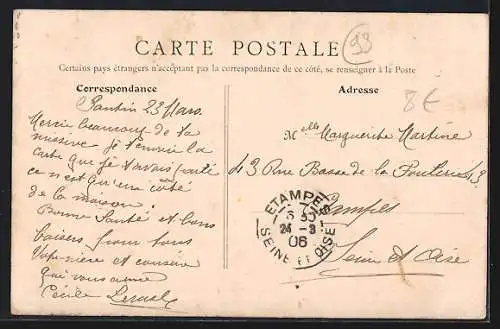 CARTE POSTALE
93
Certains pays étrangers n'acceptant pas la correspondance de ce côté, se renseigner à la Poste
Correspondance
Adresse
8€
Pantin 23 Mars
Mercie beaucoup de ta
missive je t'envoie la
carte que je t'avais parlé
ce n'est qu'une côté
de la maison.
Bonne Santé et bons
baisers pour tous
Votre et cousine
qui vous aime
Cécile
Melle Marguerite Martine
43 Rue Basse de la Foulerie 43
Etampes
Seine et Oise
ETAMPES
24 - 3
06
SEINE ET OISE